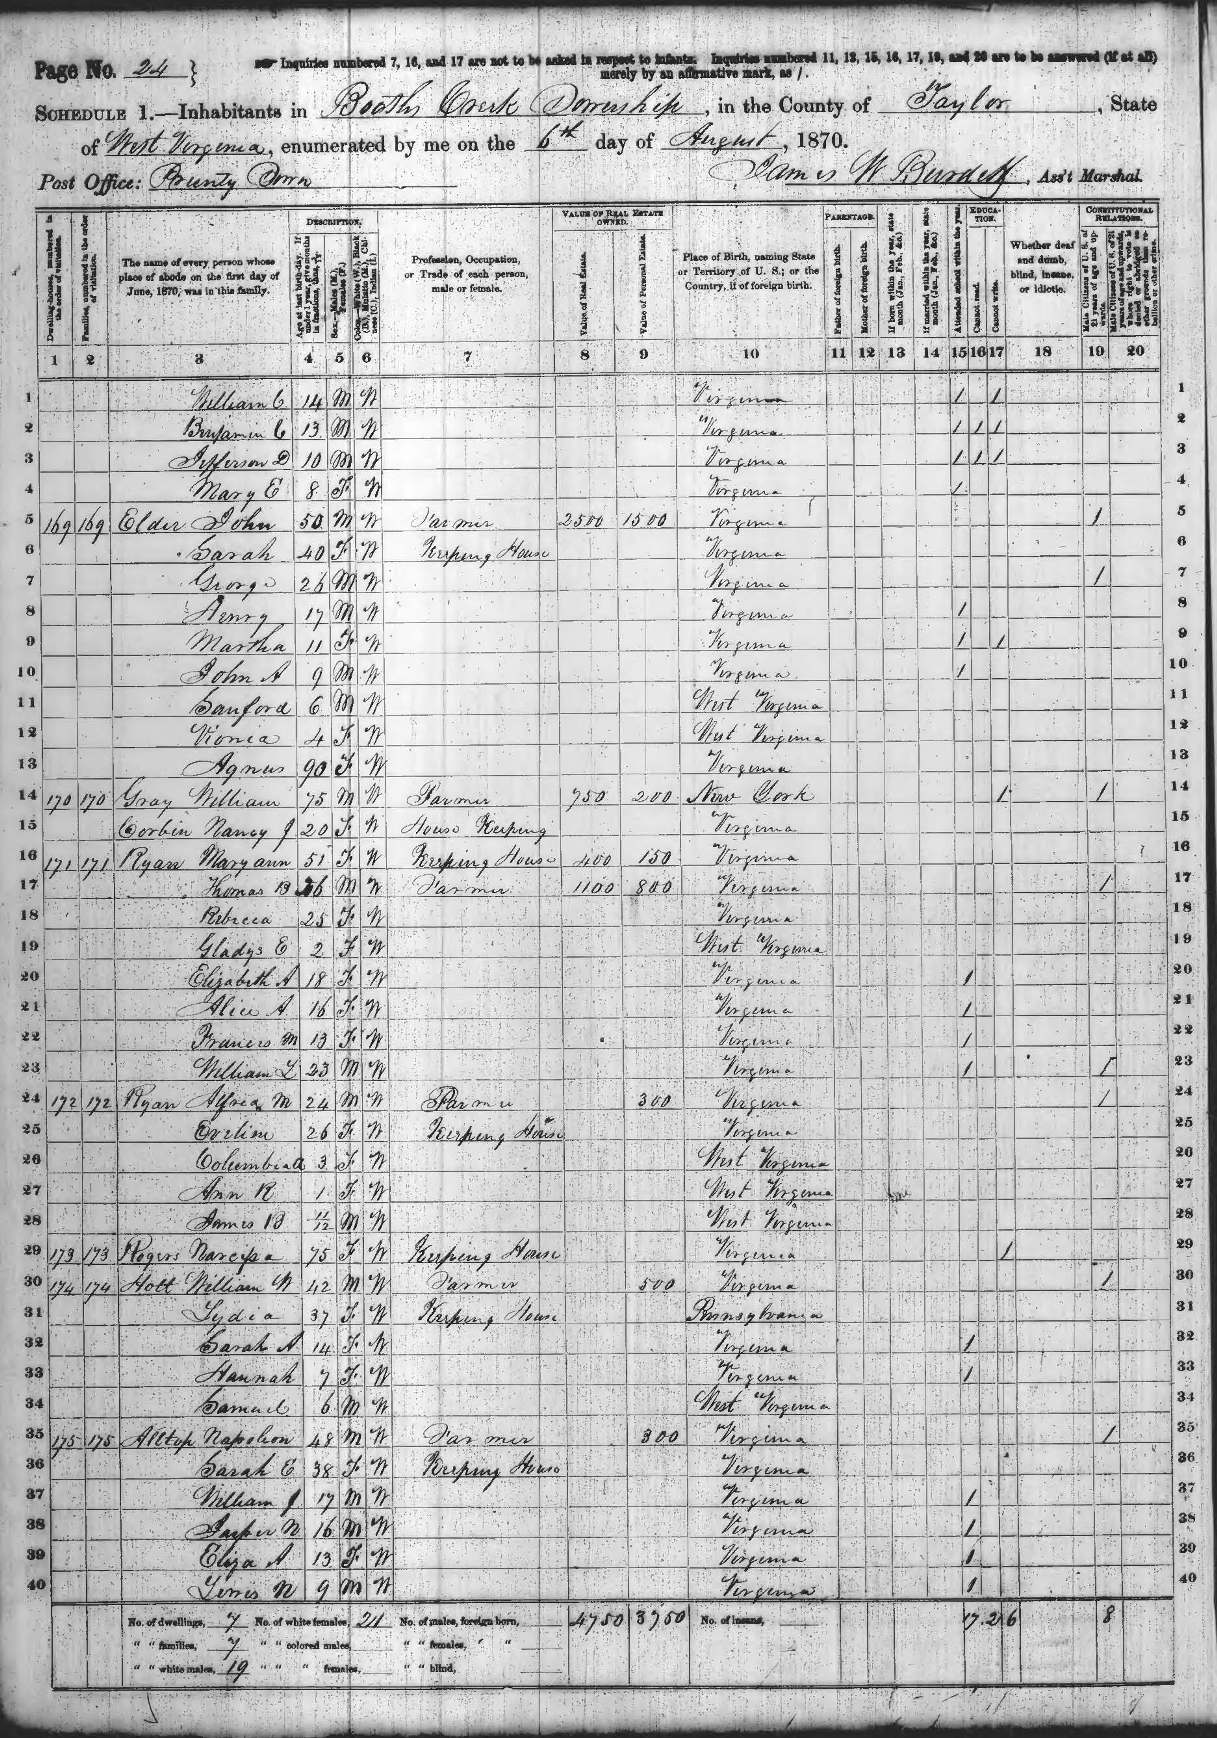 Page No. 24 } Inquiries numbered 7, 16, and 17 are not to be asked in respect to infants. Inquiries numbered 11, 12, 15, 16, 17, 19, and 20 are to be answered (if at all)
merely by an affirmative mark, as /.
SCHEDULE 1.—Inhabitants in Booths Creek Township, in the County of Taylor, State
of West Virginia, enumerated by me on the 6th day of August, 1870.
Post Office: Prunty Town James W Burdett, Ass't Marshal.
Dwelling-houses, numbered in the order of visitation.
Families, numbered in the order of visitation.
The name of every person whose place of abode on the first day of June, 1870, was in this family.
DESCRIPTION.
Age at last birth-day. If under 1 year, give months in fractions, thus, 3/12
Sex.—Males (M.), Females (F.)
Color.—White (W.), Black (B.), Mulatto (M.), Chinese (C.), Indian (I.)
Profession, Occupation, or Trade of each person, male or female.
VALUE OF REAL ESTATE OWNED.
Value of Real Estate.
Value of Personal Estate.
Place of Birth, naming State or Territory of U. S.; or the Country, if of foreign birth.
PARENTAGE.
Father of foreign birth.
Mother of foreign birth.
If born within the year, state month (Jan., Feb., &c.)
If married within the year, state month (Jan., Feb., &c.)
EDUCATION.
Attended school within the year.
Cannot read.
Cannot write.
Whether deaf and dumb, blind, insane, or idiotic.
CONSTITUTIONAL RELATIONS.
Male Citizens of U. S. of 21 years of age and upwards.
Male Citizens of U. S. of 21 years of age and upwards, whose right to vote is denied or abridged on other grounds than rebellion or other crime.
1 2 3 4 5 6 7 8 9 10 11 12 13 14 15 16 17 18 19 20
1 William C 14 M W Virginia / / 1
2 Benjamin C 13 M W Virginia / / / 2
3 Jefferson D 10 M W Virginia / / / 3
4 Mary E 8 F W Virginia / 4
5 169 169 Elder John 50 M W Farmer 2500 1500 Virginia / 5
6 Sarah 40 F W Keeping House Virginia 6
7 George 26 M W Virginia / 7
8 Henry 17 M W Virginia / 8
9 Martha 11 F W Virginia / / 9
10 John A 9 M W Virginia / 10
11 Sanford 6 M W West Virginia 11
12 Vionia 4 F W West Virginia 12
13 Agnus 90 F W Virginia 13
14 170 170 Gray William 75 M W Farmer 750 200 New York / / 14
15 Corbin Nancy J 20 F W House Keeping Virginia 15
16 171 171 Ryan Mary ann 51 F W Keeping House 400 150 Virginia 16
17 Thomas B 26 M W Farmer 1100 800 Virginia / 17
18 Rebecca 25 F W Virginia 18
19 Gladys E 2 F W West Virginia 19
20 Elizabeth A 18 F W Virginia / 20
21 Alice A 16 F W Virginia / 21
22 Frances M 13 F W Virginia / 22
23 William L 23 M W Virginia / / 23
24 172 172 Ryan Alfred M 24 M W Farmer 300 Virginia / 24
25 Eveline 26 F W Keeping House Virginia 25
26 Columbia A 3 F W West Virginia 26
27 Ann R 1 F W West Virginia 27
28 James B 11/12 M W West Virginia 28
29 173 173 Rogers Narcissa 75 F W Keeping House Virginia / 29
30 174 174 Holt William W 42 M W Farmer 500 Virginia / 30
31 Lydia 37 F W Keeping House Pennsylvania 31
32 Sarah A 14 F W Virginia / 32
33 Hannah 7 F W Virginia / 33
34 Samuel 6 M W West Virginia 34
35 175 175 Alltop Napoleon 48 M W Farmer 300 Virginia / 35
36 Sarah E 38 F W Keeping House Virginia 36
37 William J 17 M W Virginia / 37
38 Jasper N 16 M W Virginia / 38
39 Eliza A 13 F W Virginia / 39
40 Lewis N 9 M W Virginia / 40
No. of dwellings, 7 No. of white females, 21 No. of males, foreign born, 4750 3750 No. of insane, 17 2 6 8
" " families, 7 " " colored males, " " females, " "
" " white males, 19 " " " females, " " blind,